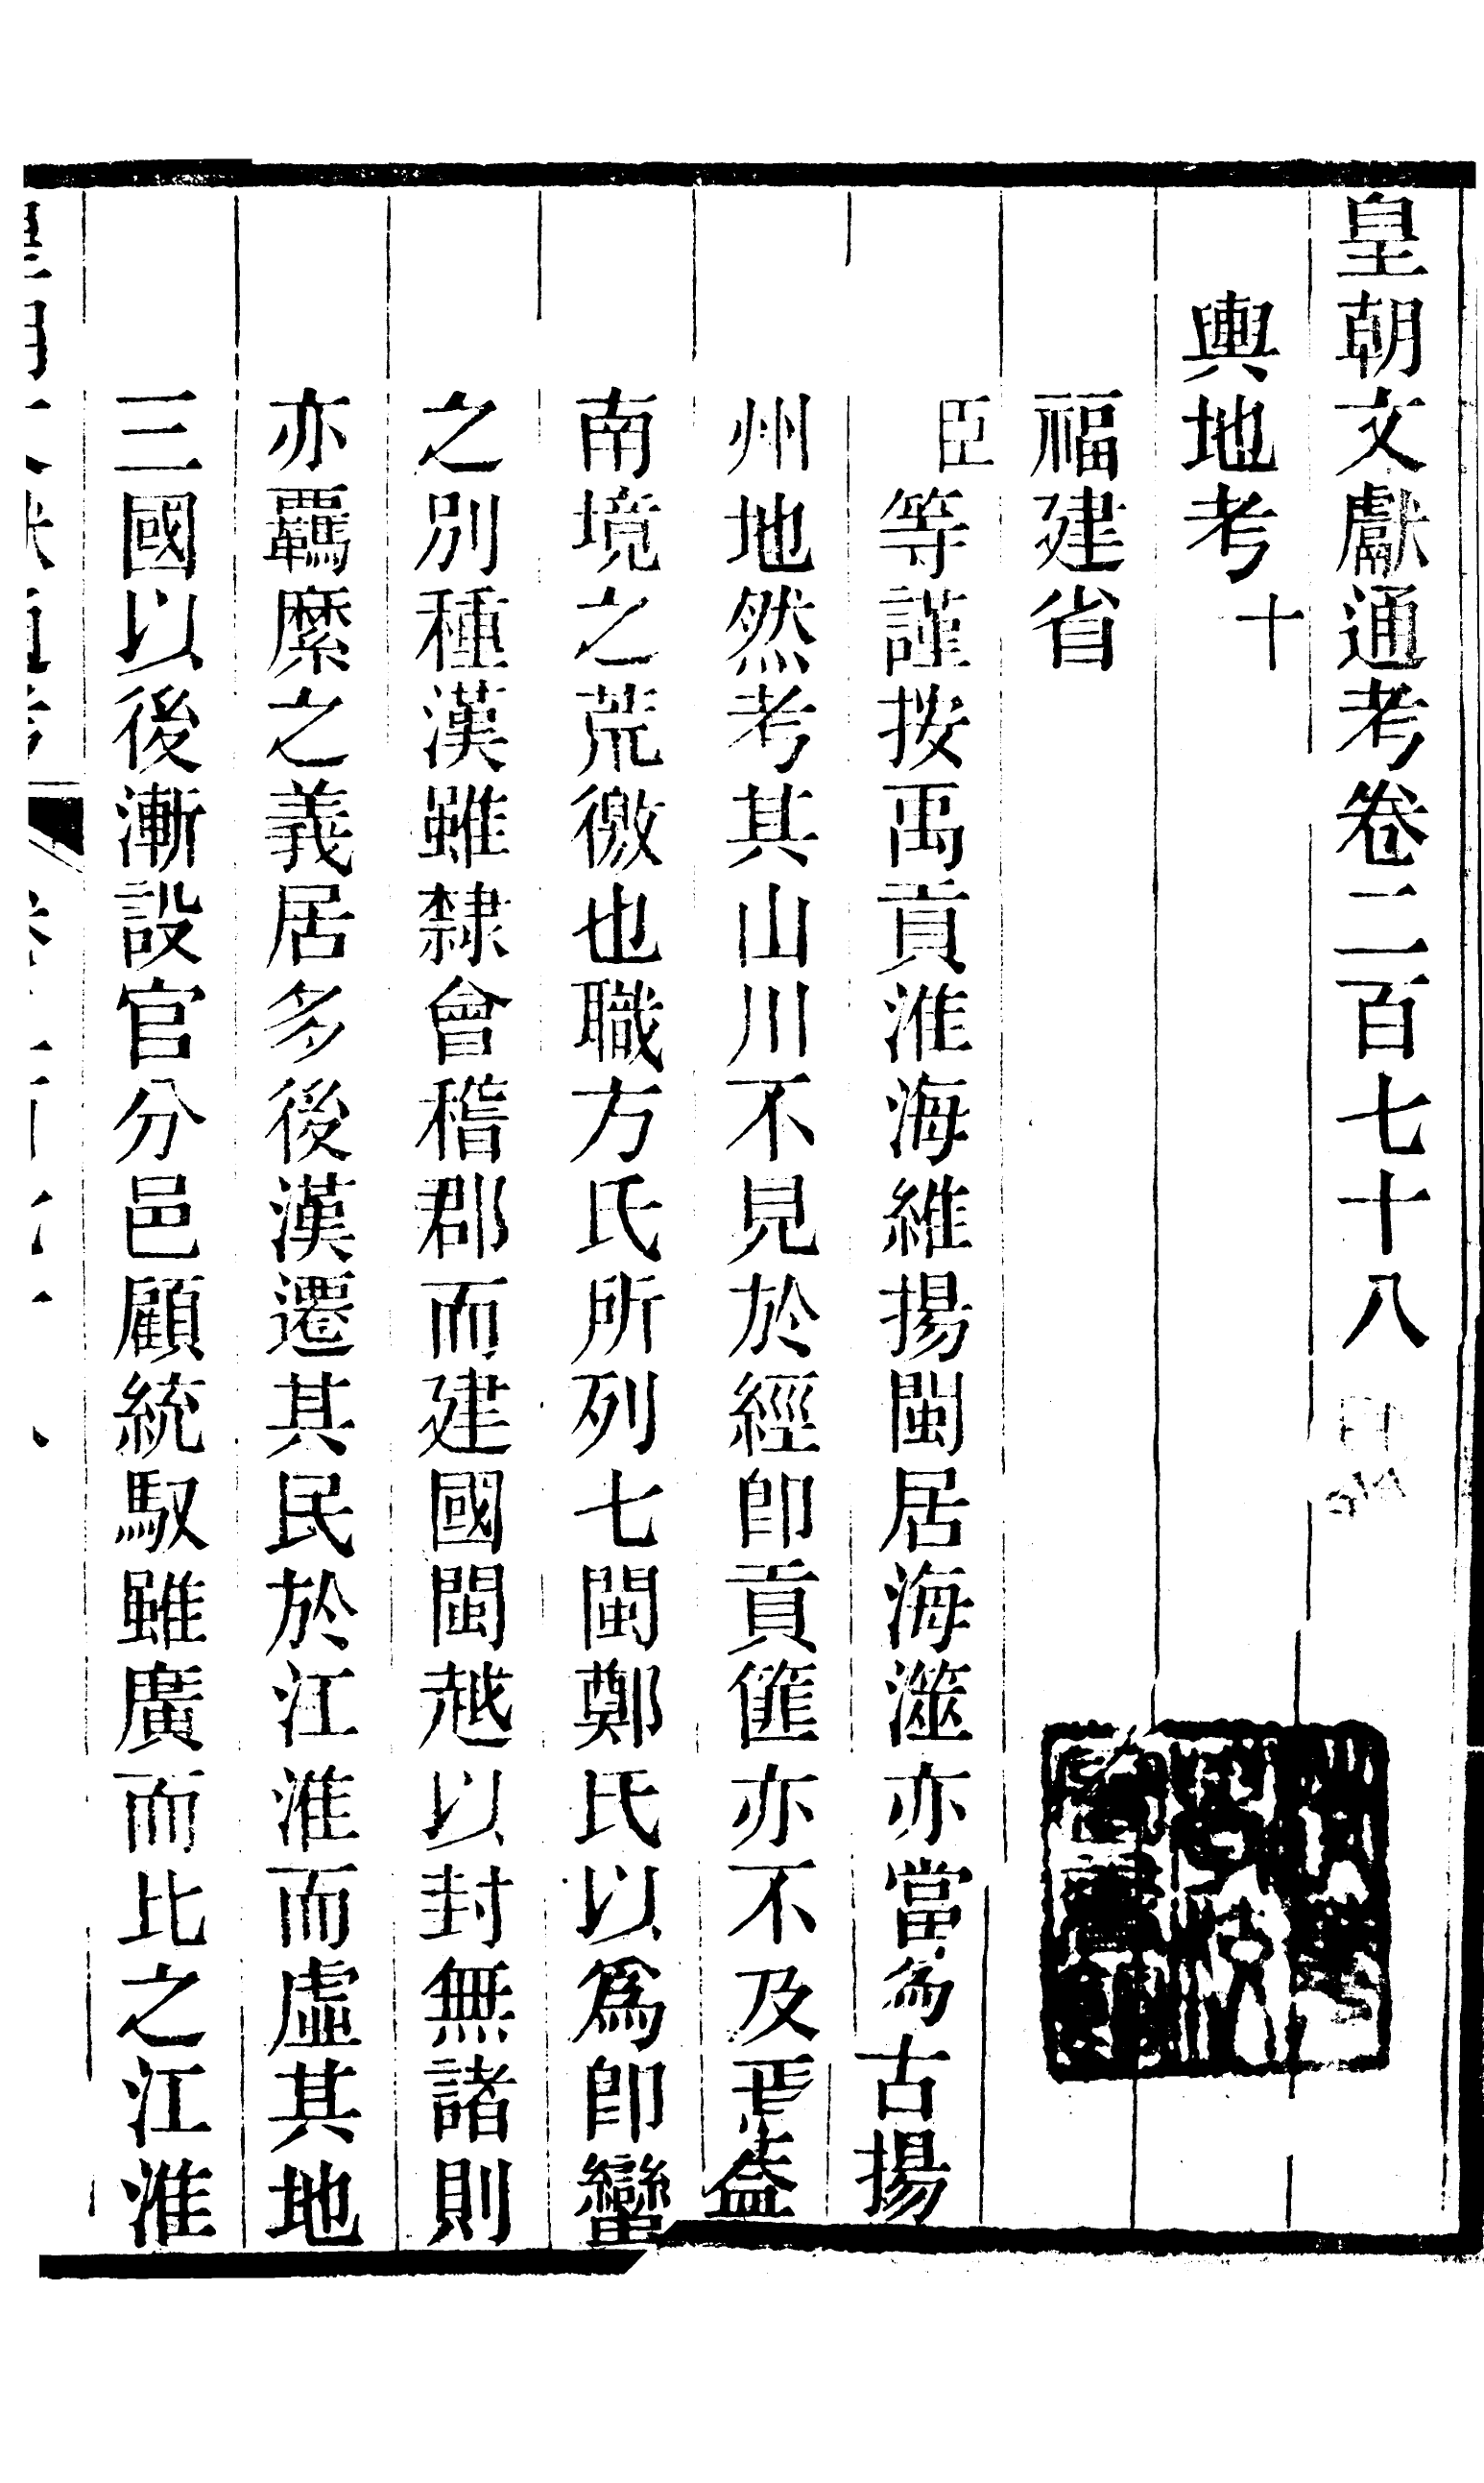 皇朝文獻通考卷二百七十八
輿地考十
福建省
臣等謹按禹貢淮海維揚閩居海澨亦當為古揚
州地然考其山川不見於經卽貢篚亦不及焉葢
南境之荒徼也職方氏所列七閩鄭氏以爲卽蠻
之別種漢雖隸會稽郡而建國閩越以封無諸則
亦羈縻之義居多後漢遷其民於江淮而虛其地
三國以後漸設官分邑顧統馭雖廣而比之江淮